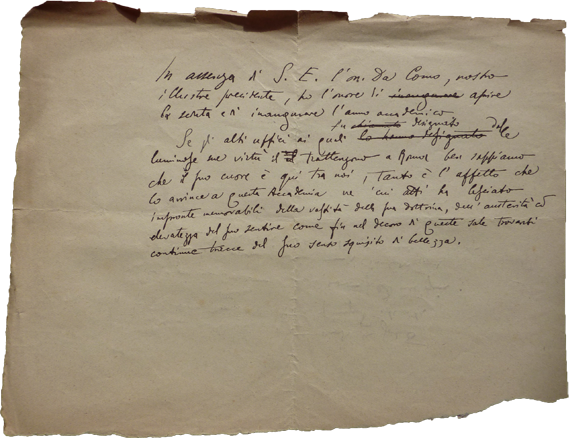 In assenza di S. E. l'on. Da Como, nostro
illustre presidente, ho l'onore di inaugurare aprire
la seduta e di inaugurare l'anno accademico
fu chiamato designato
Se gli alti uffici ai quali lo hanno designato dalle
luminose sue virtù il trattengono a Roma ben sappiamo
che il suo cuore è qui tra noi, tanto è l'affetto che
lo avvince a questa Accademia ve 'cui ha lasciato
impronte memorabili della vastità della sua dottrina, dell'austerità ed
elevatezza del suo sentire come fin nel decoro di queste sale trovansi
continue tracce del suo senso squisito di bellezza.